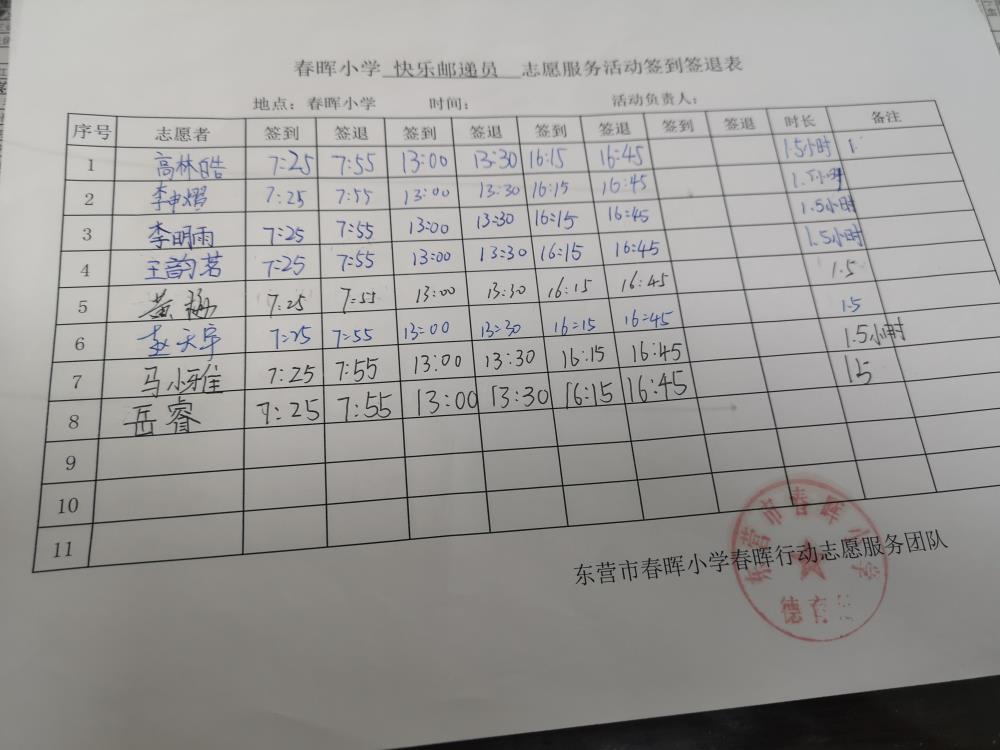 春晖小学 快乐邮递员 志愿服务活动签到签退表
地点：春晖小学 时间： 活动负责人：
序号 志愿者 签到 签退 签到 签退 签到 签退 签到 签退 时长 备注
1 高林皓 7:25 7:55 13:00 13:30 16:15 16:45 1.5小时 1
2 李申熠 7:25 7:55 13:00 13:30 16:15 16:45 1.5小时
3 李明雨 7:25 7:55 13:00 13:30 16:15 16:45 1.5小时
4 王韵茗 7:25 7:55 13:00 13:30 16:15 16:45 1.5小时
5 黄 7:25 7:55 13:00 13:30 16:15 16:45 1.5
6 赵天宇 7:25 7:55 13:00 13:30 16:15 16:45 1.5
7 马小雅 7:25 7:55 13:00 13:30 16:15 16:45 1.5小时
8 岳睿 7:25 7:55 13:00 13:30 16:15 16:45 1.5
9
10
11
东营市春晖小学春晖行动志愿服务团队
东营市春晖小学
德育